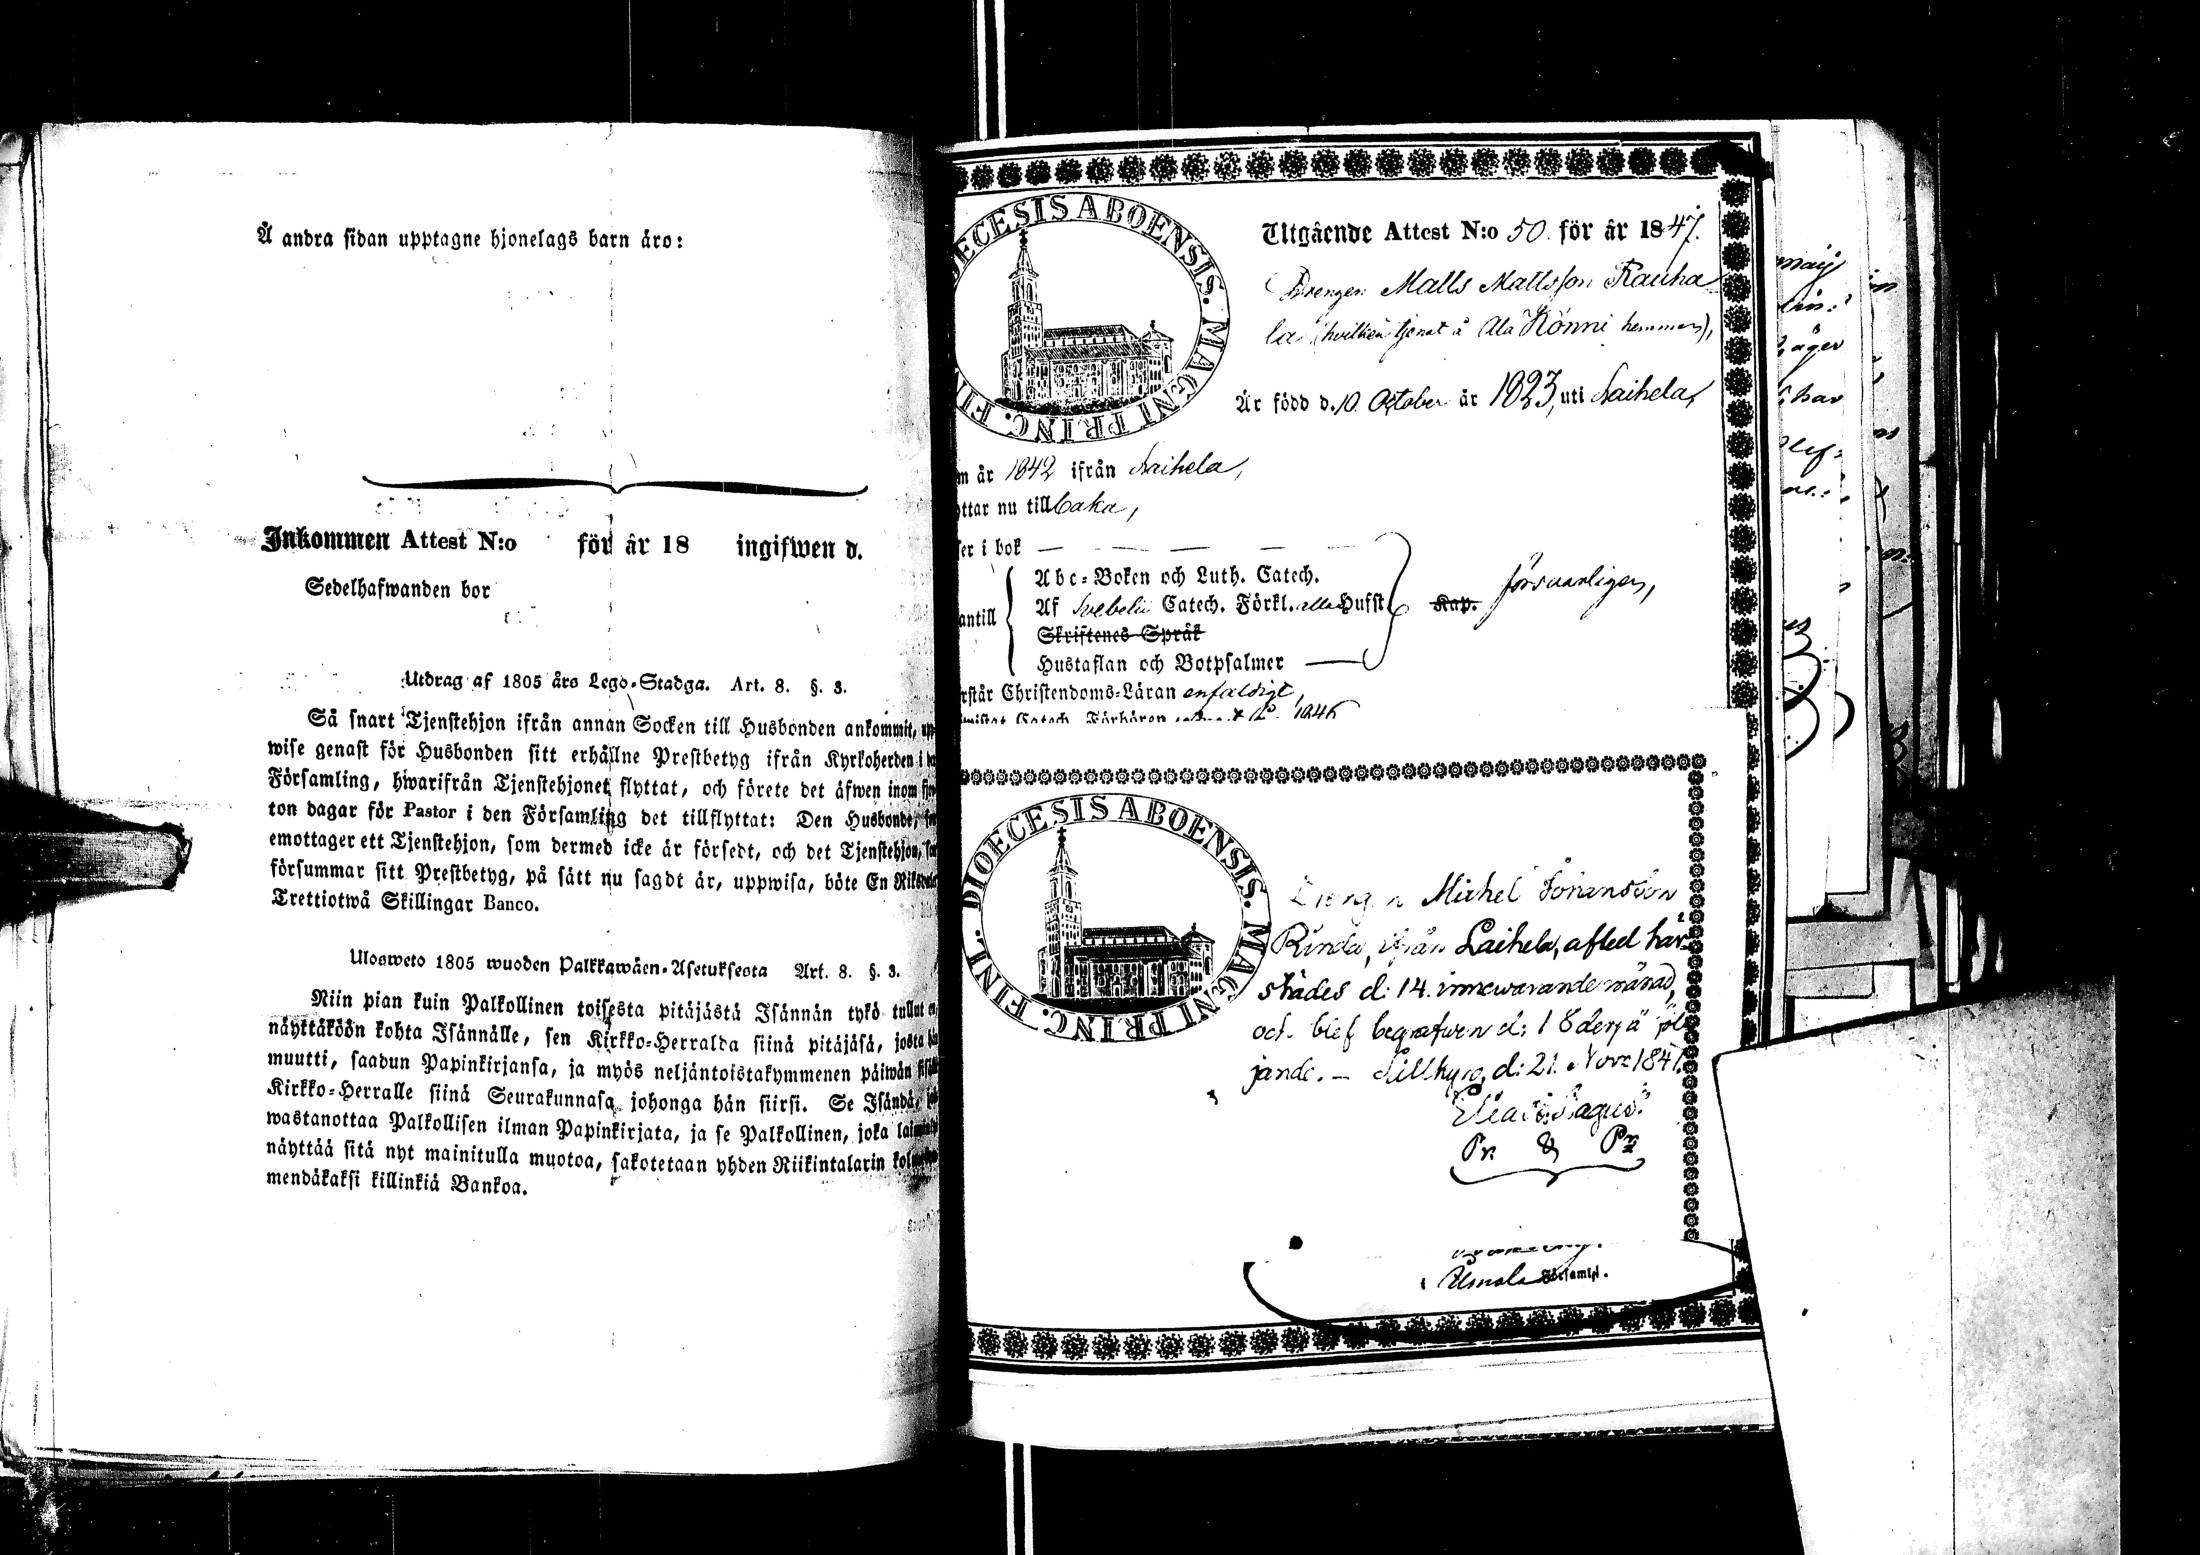 Å andra sidan upptagne hjonelags barn äro:
Inkommen Attest N:o för år 18 ingifwen d.
Sedelhafwanden bor
Utdrag af 1805 års Lego-Stadga. Art. 8. §. 3.
Så snart Tjenstehjon ifrån annan Socken till Husbonden ankommit,
wise genast för Husbonden sitt erhållne Prestbetyg ifrån Kyrkoherden i
Församling, hwarifrån Tjenstehjonet flyttat, och förete det äfwen inom
ton dagar för Pastor i den Församling det tillflyttat: Den Husbonde,
emottager ett Tjenstehjon, som dermed icke är försedt, och det Tjenstehjon,
försummar sitt Prestbetyg, på sätt nu sagdt är, uppwisa, böte En
Trettiotwå Skillingar Banco.
Ulosweto 1805 wuoden Palkkawäen-Asetuksesta Art. 8. §. 3.
Niin pian kuin Palkollinen toisesta pitäjästä Isännän tykö tullut
näyttäköön kohta Isännälle, sen Kirkko-Herralda siinä pitäjäsä, josta
muutti, saadun Papinkirjansa, ja myös neljäntoistakymmenen päiwän
Kirkko-Herralle siinä Seurakunnasa johonga hän siirsi. Se Isändä,
wastanottaa Palkollisen ilman Papinkirjata, ja se Palkollinen, joka
näyttää sitä nyt mainitulla muotoa, sakotetaan yhden Riikintalarin
mendäkaksi killinkiä Bankoa.
DIOECESIS ABOENSIS. MAGNI PRINC. FINL.
Utgående Attest N:o 50. för år 1847.
Drengen Matts Mattsson Rauha
la (hvilken tjenat å Ala Könni hemman),
Är född d. 10. October år 1823, uti Laihela,
m år 1842 ifrån Laihela,
ttar nu tillbaka,
ser i bok
Abc-Boken och Luth. Catech.
antill Af Svebelii Catech. Förkl. alla Husst. Kap. försvarligen,
Skriftenes Språk
Hustaflan och Botpsalmer
rstår Christendoms-Läran enfaldigt,
DIOECESIS ABOENSIS. MAGNI PRINC. FINL.
Drengen Michel Johansson
Rinda, ifrån Laihela, afled här-
städes d: 14. innewarande månad,
och blef begrafwen d: 18 derpå föl
jande. – Lillkyro, d: 21. Nov: 1847.
Pr. & Pr
Församl.